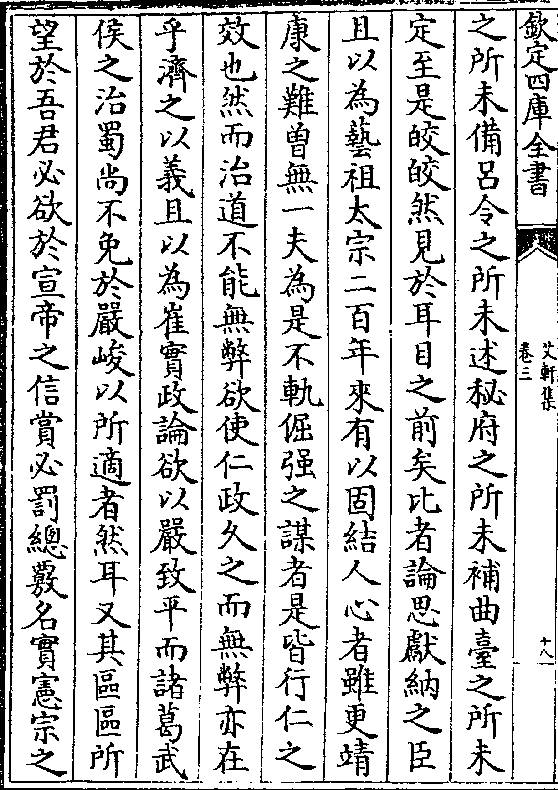 欽定四庫全書
艾軒集
卷三
十八
之所未備呂令之所未述秘府之所未補曲臺之所未
定至是皎皎然見於耳目之前矣比者論思獻納之臣
且以為藝祖太宗二百年來有以固結人心者雖更靖
康之難曽無一夫為是不軌倔强之謀者是皆行仁之
效也然而治道不能無弊欲使仁政久之而無弊亦在
乎濟之以義且以為崔實政論欲以嚴致平而諸葛武
侯之治蜀尚不免於嚴峻以所適者然耳又其區區所
望於吾君必欲於宣帝之信賞必罰總覈名實憲宗之